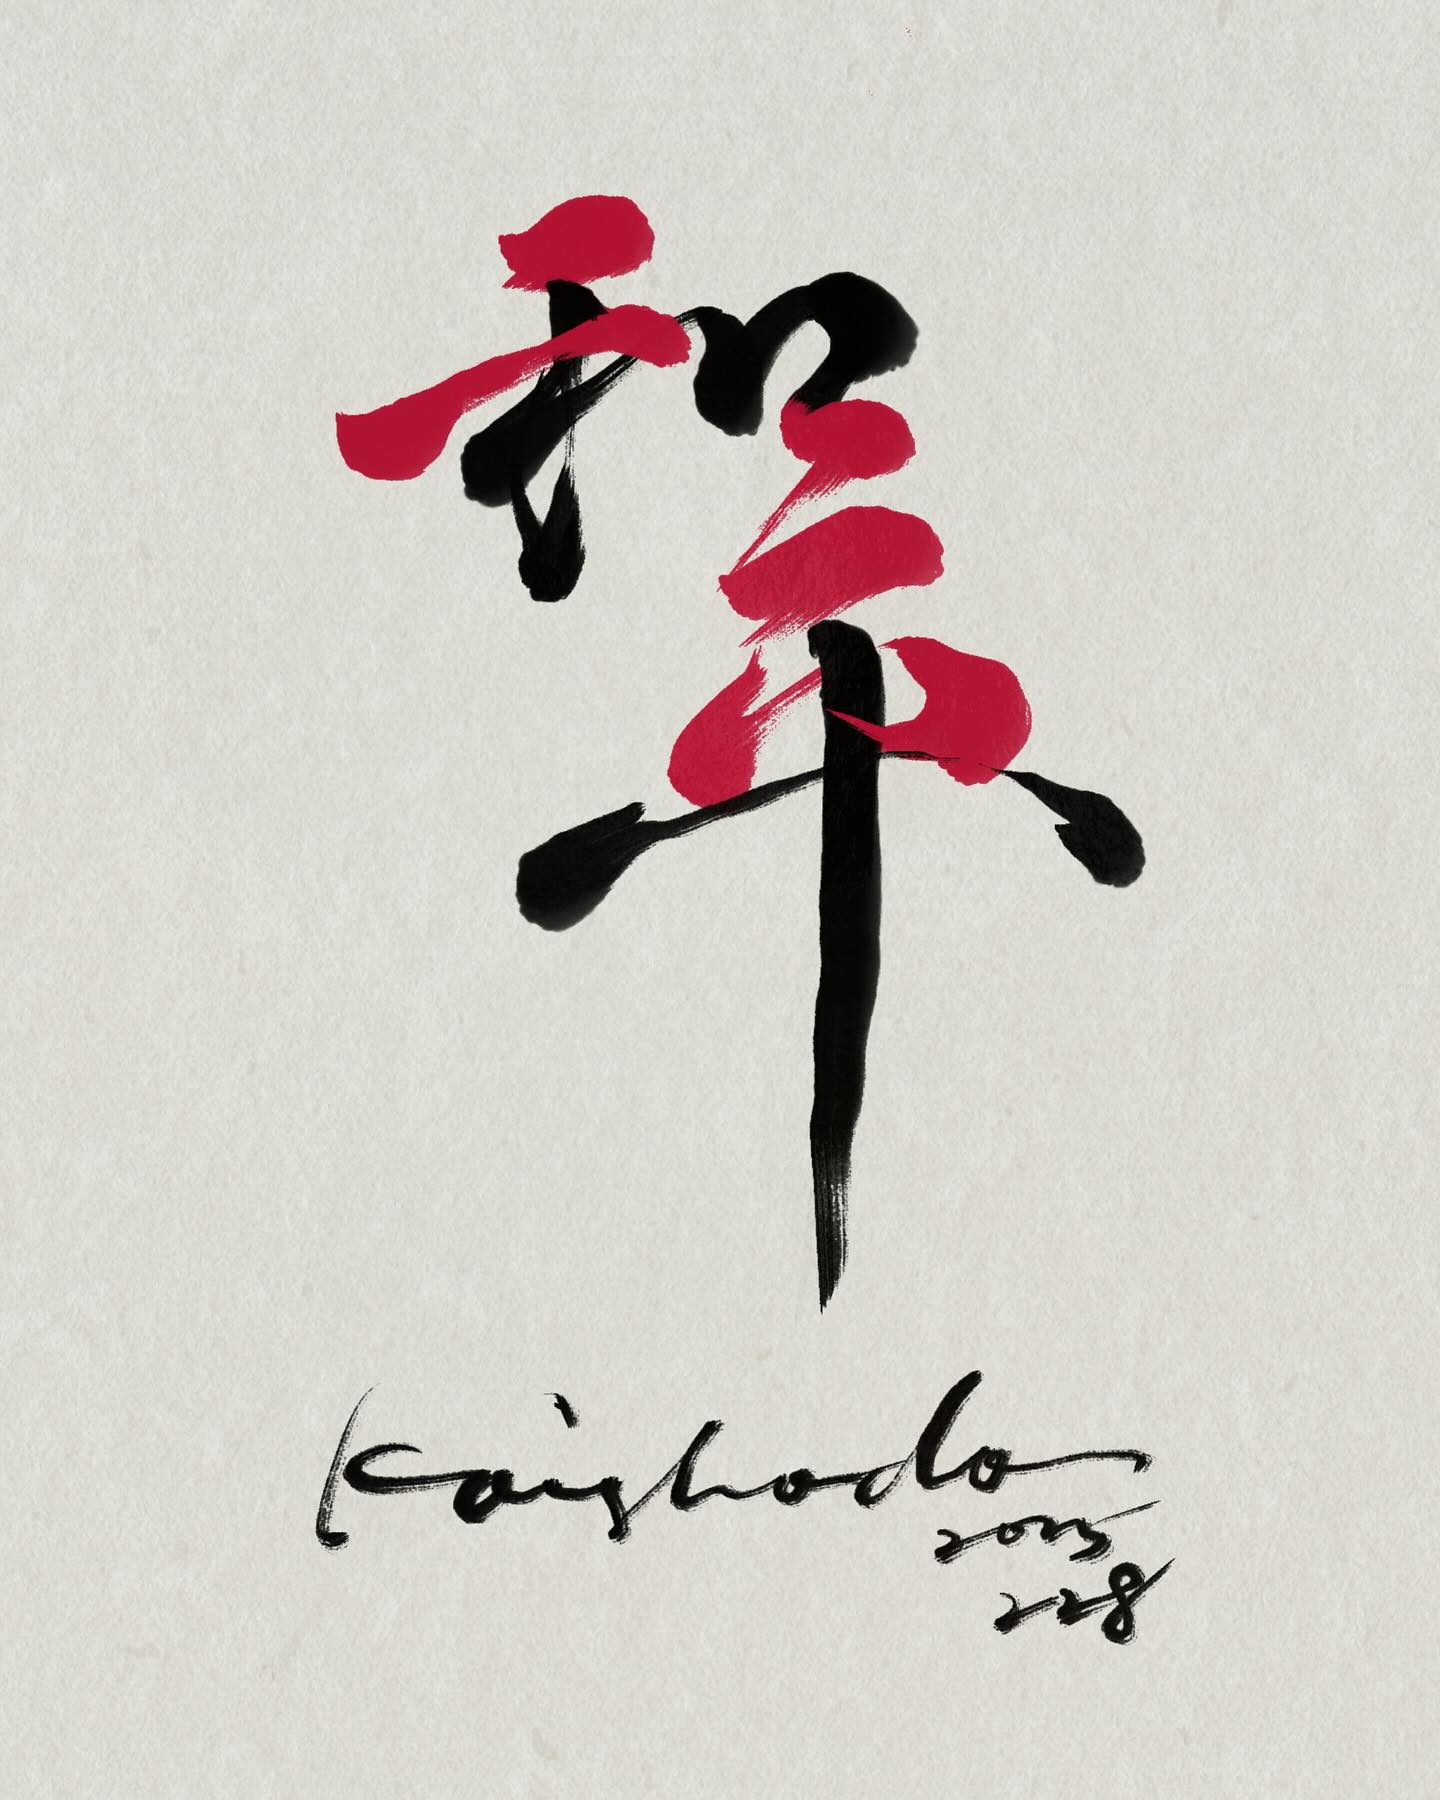 和平
Kaishodo
2025
228